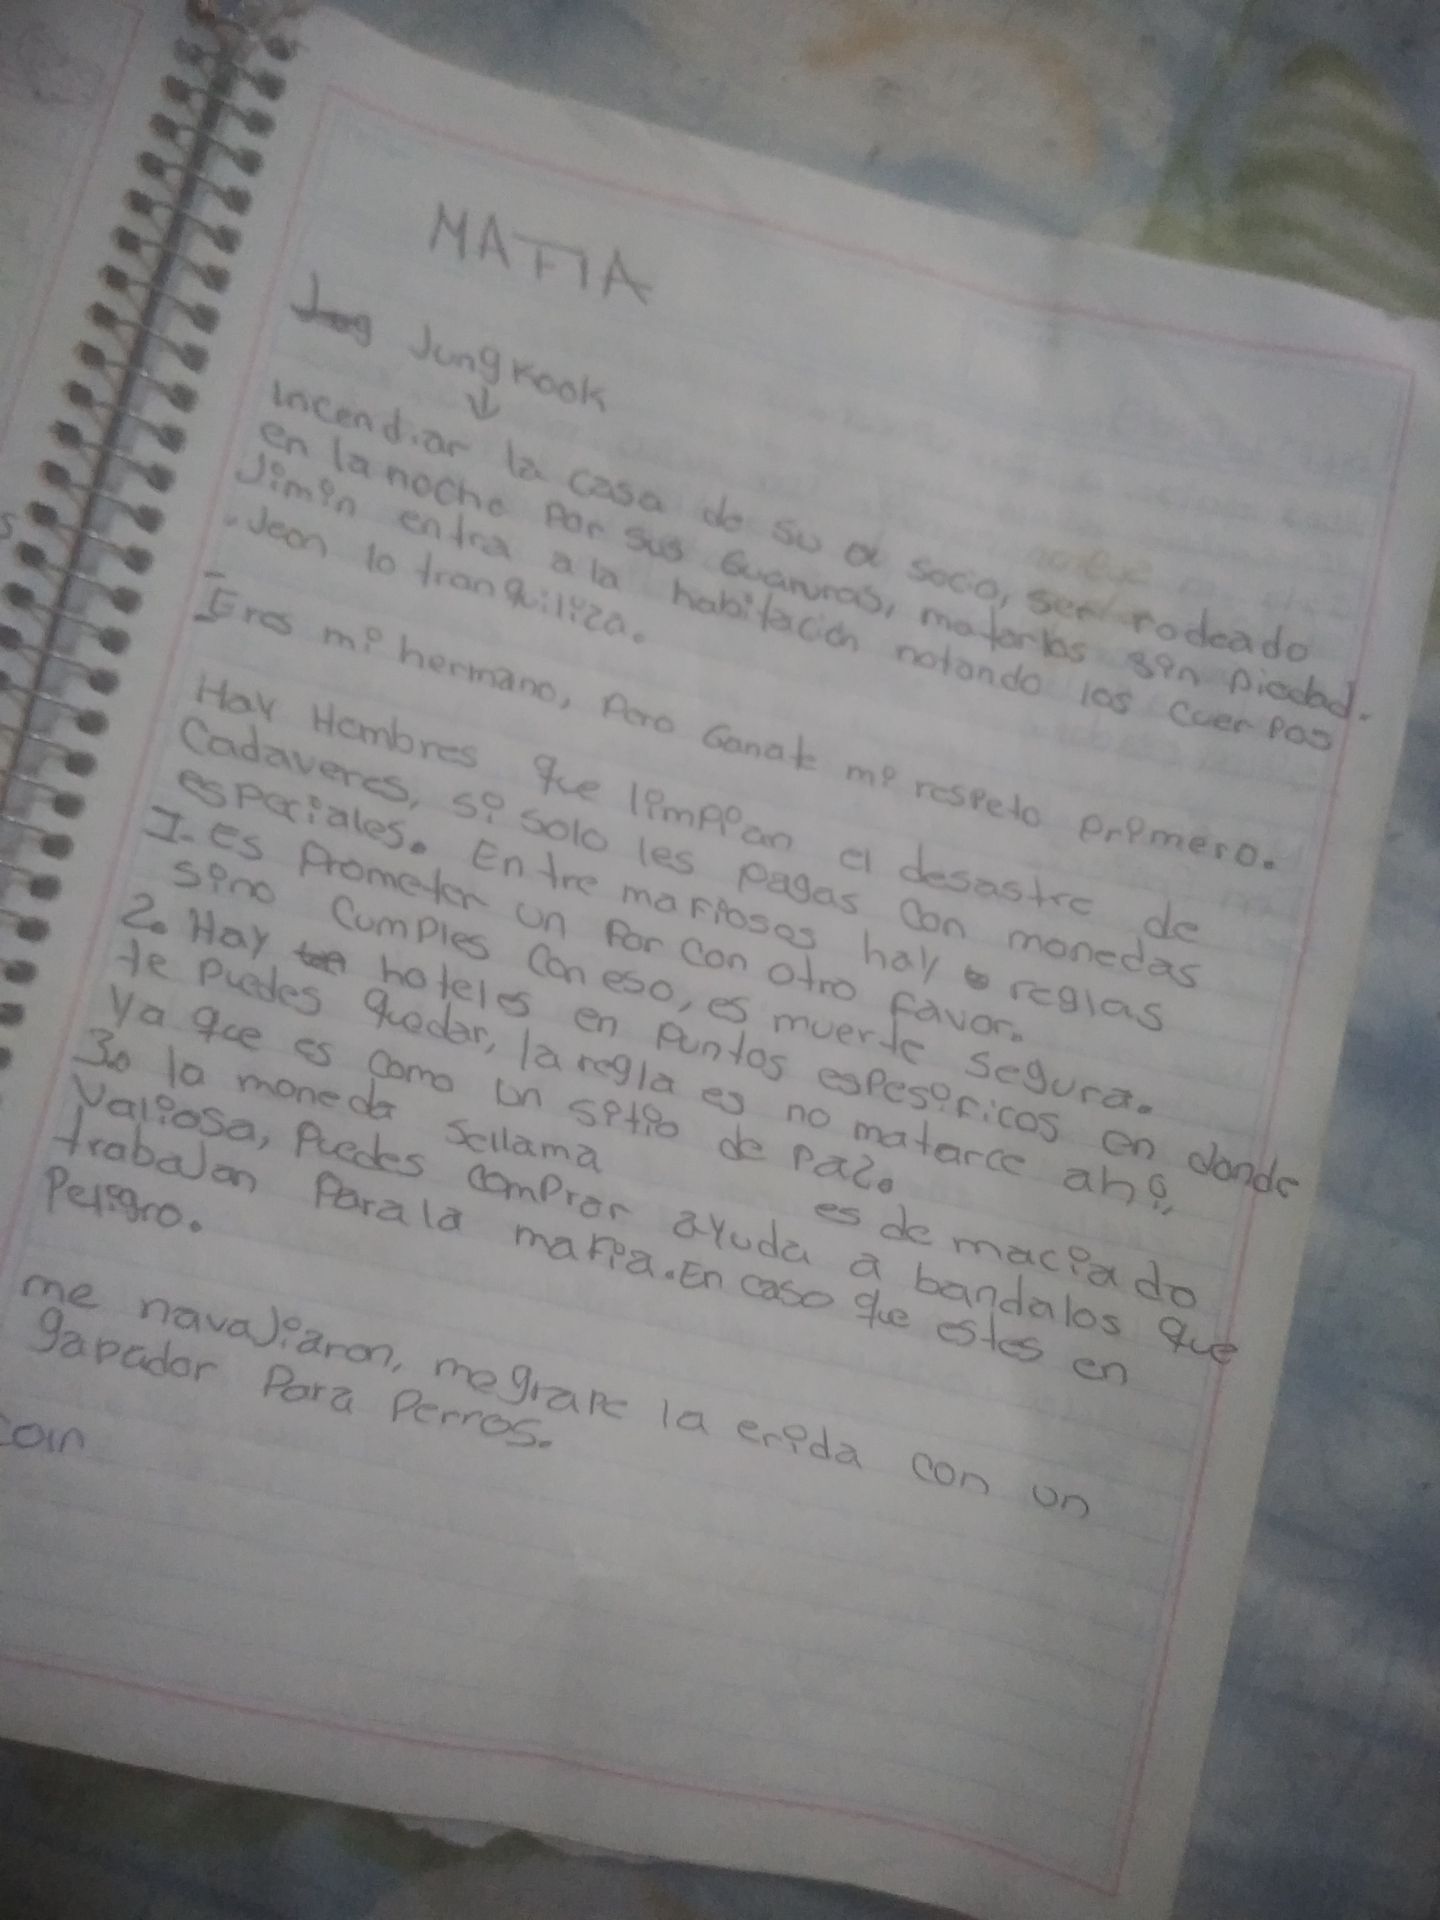 MAFIA
Jungkook
↓
Incendiar la casa de su socio, ser rodeado
en la noche por sus Guaruras, matarlos sin piedad.
Jimin entra a la habitacion notando los cuerpos
. Jeon lo tranquiliza.
- Eres mi hermano, pero Ganate mi respeto primero.
Hay Hombres que limpian el desastre de
Cadaveres, si solo les pagas con monedas
especiales. Entre mafiosos hay reglas
1. Es Prometer un For con otro favor.
sino Cumples con eso, es muerte segura.
2. Hay hoteles en puntos espesificos en donde
te puedes quedar, la regla es no matarce ahi,
Ya que es como un sitio de paz.
3. la moneda sellama es de maciado
Valiosa, puedes comprar ayuda a bandalos que
trabajan Para la mafia. En caso que estes en
Peligro.
me navajiaron, me grape la erida con un
gapador Para Perros.
coin